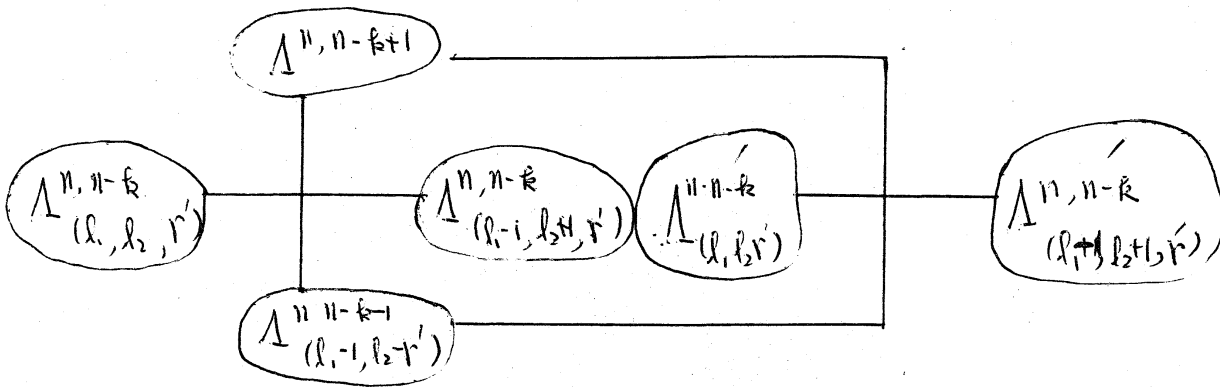 Λ^{n, n-k+1}
Λ^{n, n-k}_{(l₁, l₂, r')}
Λ^{n, n-k}_{(l₁-1, l₂+1, r')}
Λ'^{n-n-k}_{(l₁ l₂ r')}
Λ'^{n, n-k}_{(l₁+1, l₂+1, r')},
Λ^{n n-k-1}_{(l₁-1, l₂-r')}